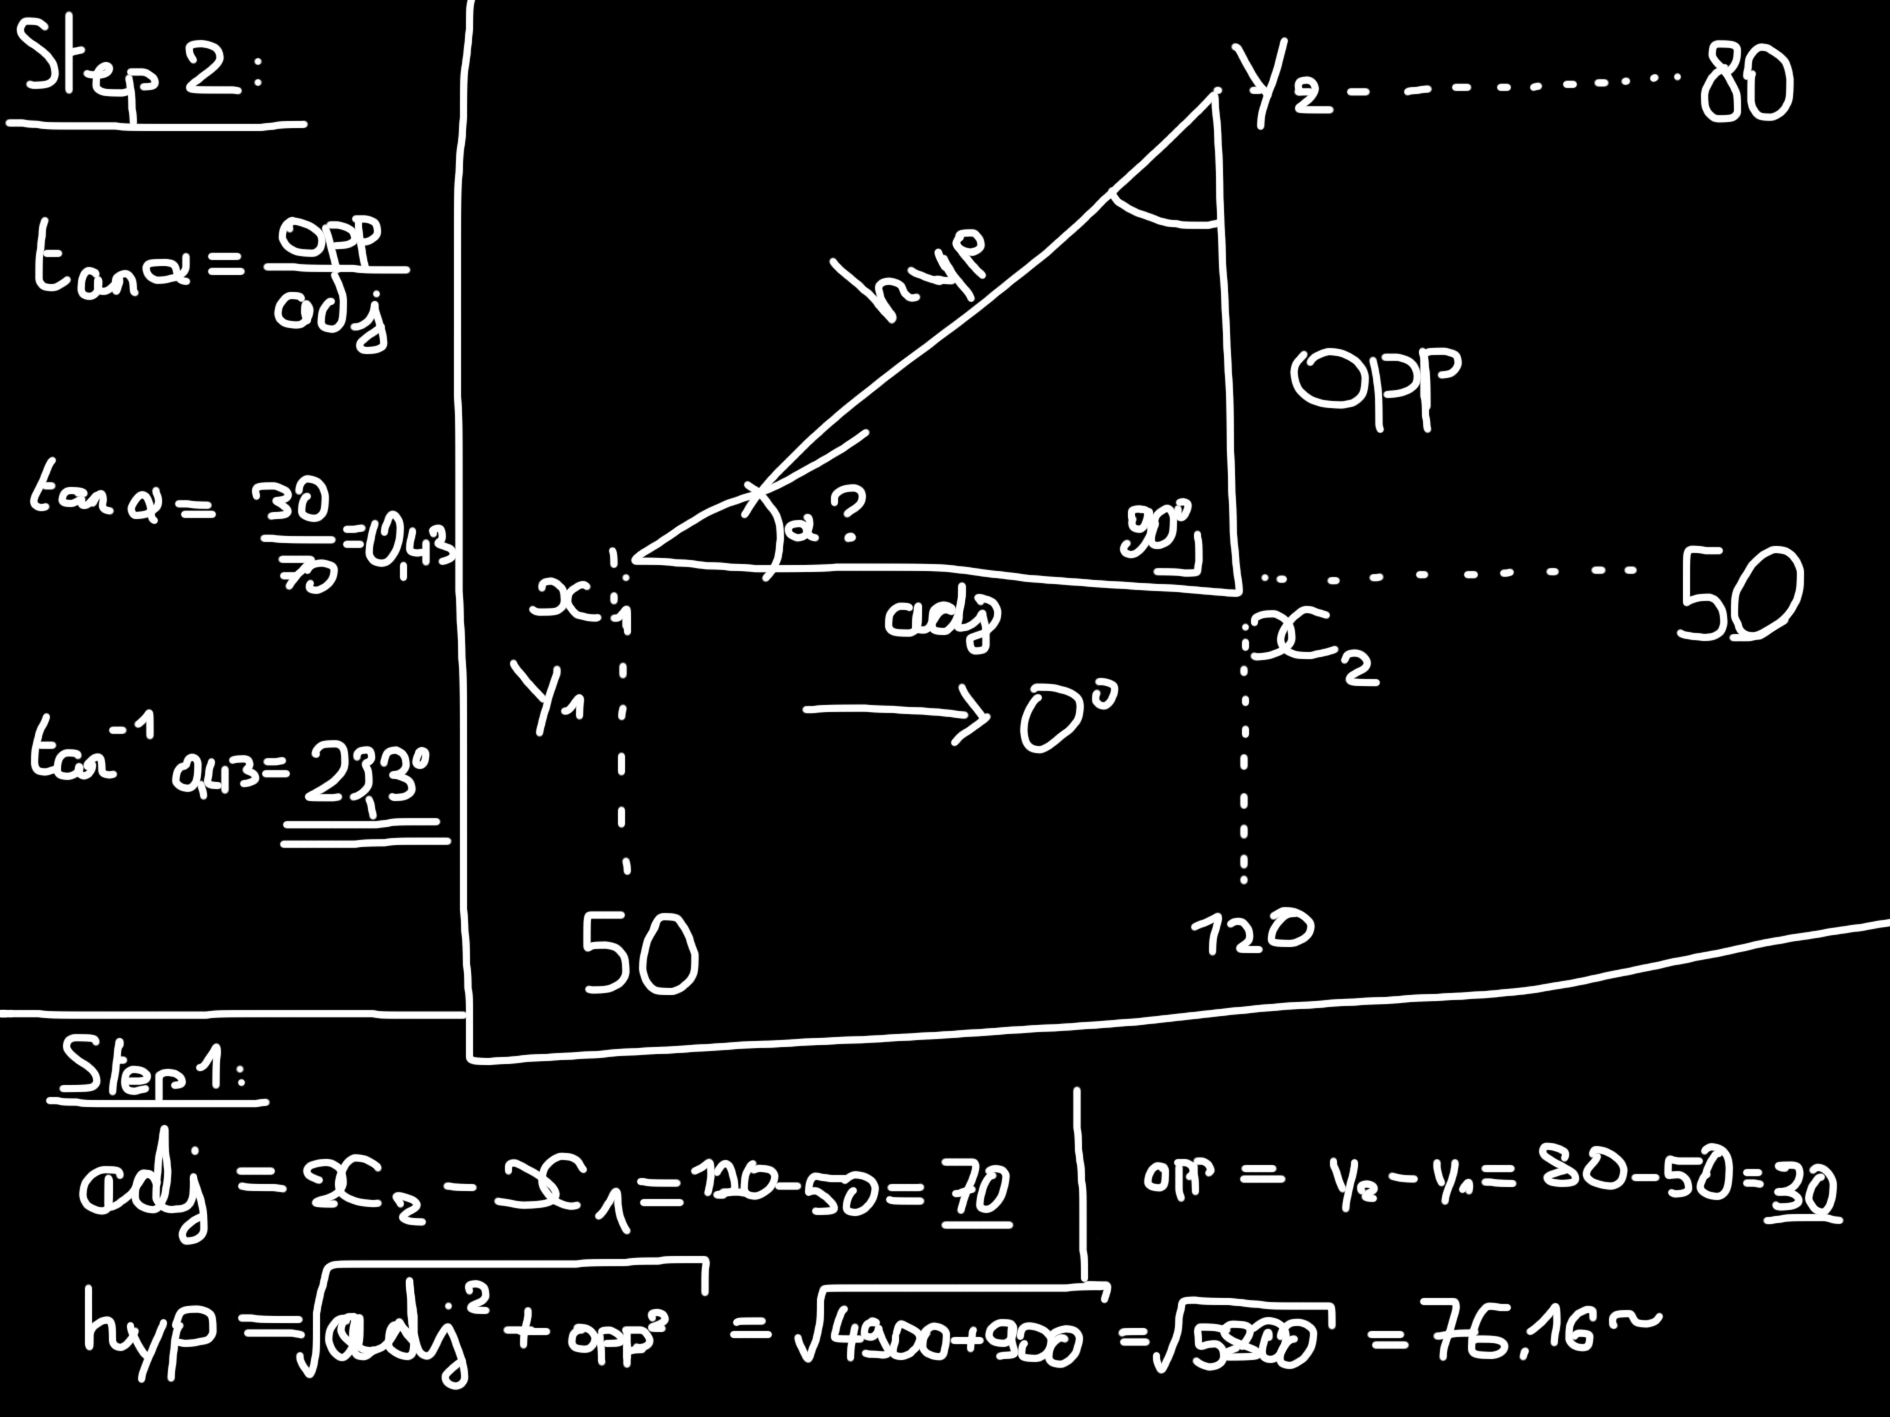 Step 2:
tan α = opp/adj
tan α = 30/70 = 0,43
tan⁻¹ 0,43 = 23,3°
y₂ 80
hyp
opp
α ?
90°
50
x₁
y₁
adj
x₂
→ 0°
50
120
Step 1:
adj = x₂ - x₁ = 120 - 50 = 70
opp = y₂ - y₁ = 80 - 50 = 30
hyp = √adj² + opp² = √4900+900 = √5800 = 76.16~